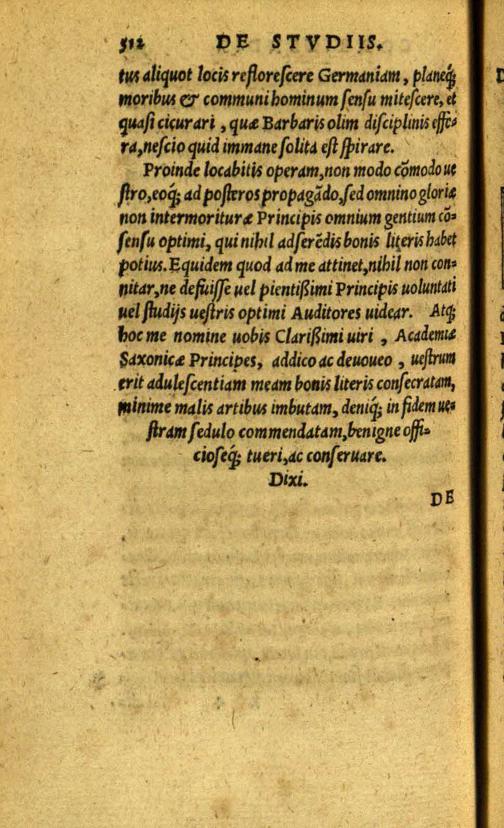 512 DE STVDIIS.
tus aliquot locis reflorescere Germaniam, planeq́;
moribus & communi hominum sensu mitescere, et
quasi cicurari, quæ Barbaris olim disciplinis effe⸗
ra, nescio quid immane solita est spirare.
Proinde locabitis operam, non modo cõmodo ue
stro, eoq́; ad posteros propagãdo, sed omnino gloriæ
non intermorituræ Principis omnium gentium cõ⸗
sensu optimi, qui nihil adserẽdis bonis literis habet
potius. Equidem quod ad me attinet, nihil non con⸗
nitar, ne defuisse uel pientißimi Principis uoluntati
uel studijs uestris optimi Auditores uidear. Atq;
hoc me nomine uobis Clarißimi uiri, Academiæ
Saxonicæ Principes, addico ac deuoueo, uestrum
erit adulescentiam meam bonis literis consecratam,
minime malis artibus imbutam, deniq́; in fidem ue⸗
stram sedulo commendatam, benigne offi⸗
cioseq́; tueri, ac conseruare.
Dixi.
DE